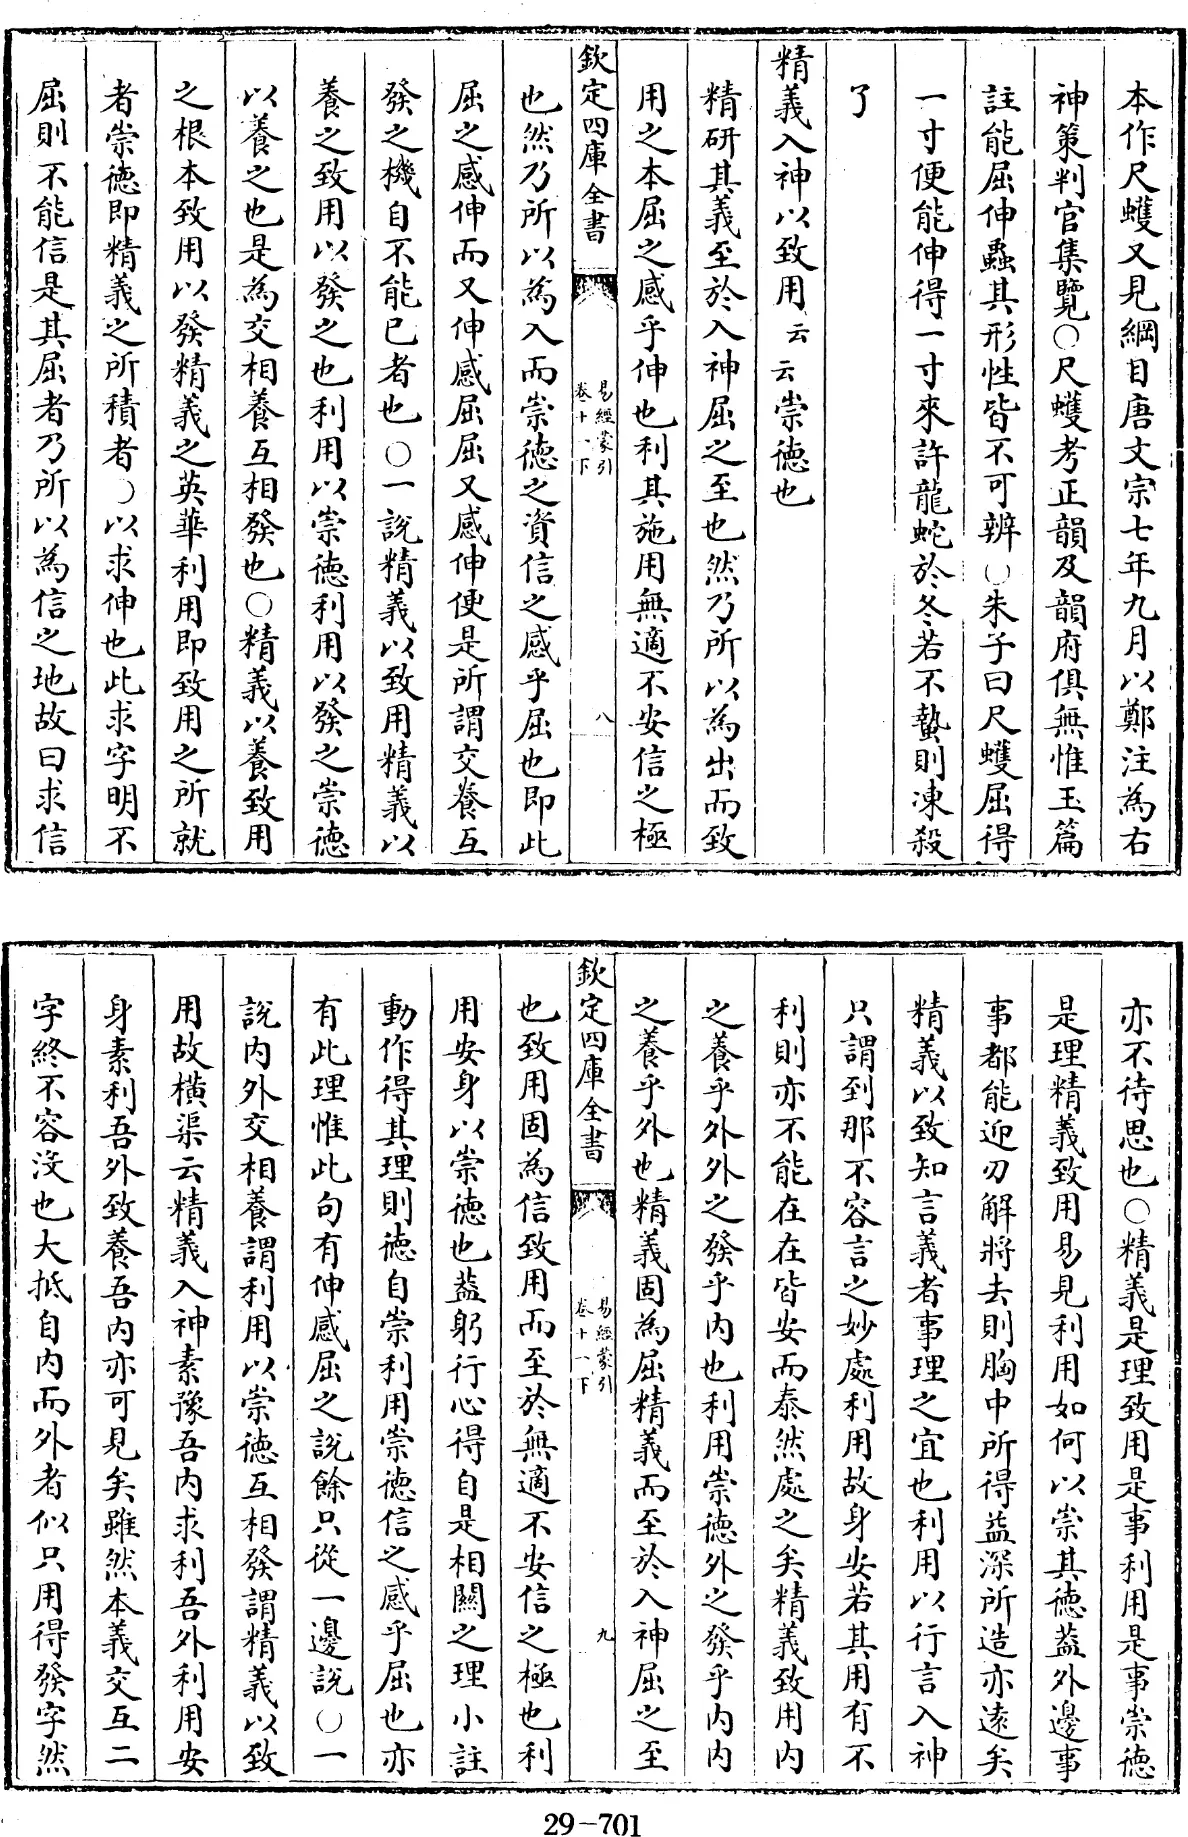 本作尺蠖又見綱目唐文宗七年九月以鄭注為右
神策判官集覽○尺蠖考正韻及韻府俱無惟玉篇
註能屈伸蟲其形性皆不可辨○朱子曰尺蠖屈得
一寸便能伸得一寸來許龍蛇於冬若不蟄則凍殺
了
精義入神以致用云云崇德也
精研其義至於入神屈之至也然乃所以為出而致
用之本屈之感乎伸也利其施用無適不安信之極
欽定四庫全書
易經蒙引
卷十一下
八
也然乃所以為入而崇德之資信之感乎屈也即此
屈之感伸而又伸感屈屈又感伸便是所謂交養互
發之機自不能已者也○一說精義以致用精義以
養之致用以發之也利用以崇德利用以發之崇德
以養之也是為交相養互相發也○精義以養致用
之根本致用以發精義之英華利用即致用之所就
者崇德即精義之所積者○以求伸也此求字明不
屈則不能信是其屈者乃所以為信之地故曰求信
亦不待思也○精義是理致用是事利用是事崇德
是理精義致用易見利用如何以崇其德葢外邊事
事都能迎刃解將去則胸中所得益深所造亦遠矣
精義以致知言義者事理之宜也利用以行言入神
只謂到那不容言之妙處利用故身安若其用有不
利則亦不能在在皆安而泰然處之矣精義致用內
之養乎外外之發乎內也利用崇德外之發乎內內
之養乎外也精義固為屈精義而至於入神屈之至
欽定四庫全書
易經蒙引
卷十一下
九
也致用固為信致用而至於無適不安信之極也利
用安身以崇德也葢躬行心得自是相關之理小註
動作得其理則德自崇利用崇德信之感乎屈也亦
有此理惟此句有伸感屈之說餘只從一邊說○一
說內外交相養謂利用以崇德互相發謂精義以致
用故橫渠云精義入神素豫吾內求利吾外利用安
身素利吾外致養吾內亦可見矣雖然本義交互二
字終不容沒也大抵自內而外者似只用得發字然
29-701